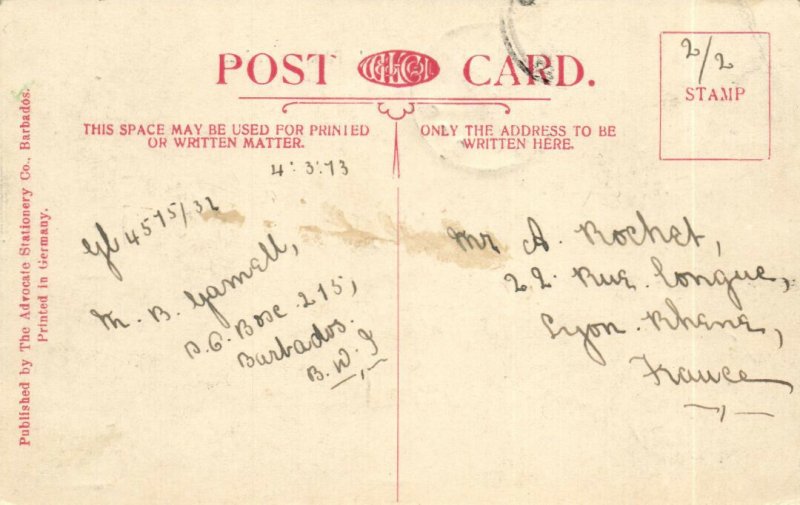 POST CARD.
2/2
STAMP
THIS SPACE MAY BE USED FOR PRINTED
OR WRITTEN MATTER.
ONLY THE ADDRESS TO BE
WRITTEN HERE.
4.3.73
4575/32
M. B. Gamell,
P.O. Box 215,
Barbados.
B.W.I
Mr A. Rochet,
22 Rue Longue,
Lyon. Rhene,
France
Published by The Advocate Stationery Co., Barbados.
Printed in Germany.